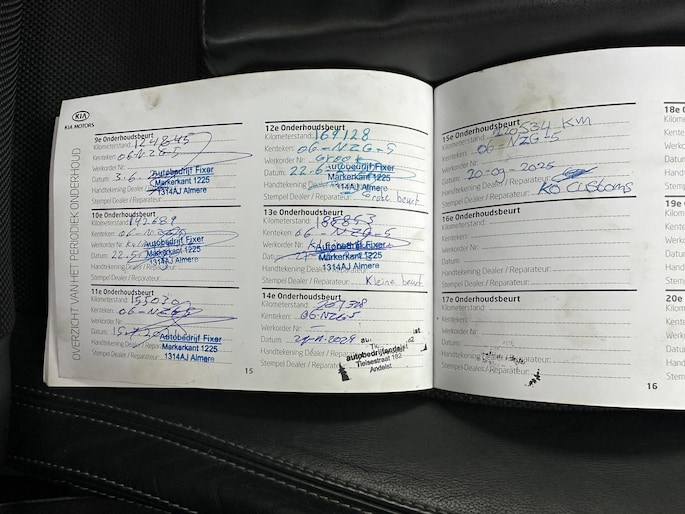 KIA
KIA MOTORS
OVERZICHT VAN HET PERIODIEK ONDERHOUD
9e Onderhoudsbeurt
Kilometerstand: 124845
Kenteken: 06-NZG-5
Werkorder Nr:
Datum: 3-6-
Handtekening Dealer
Stempel Dealer / Reparateur:
Autobedrijf Fixer
Markerkant 1225
1314AJ Almere
10e Onderhoudsbeurt
Kilometerstand: 142689
Kenteken: 06-NZG-5
Werkorder Nr:
Datum: 22-5-
Handtekening
Stempel Dealer / Reparateur:
Autobedrijf Fixer
Markerkant 1225
1314AJ Almere
11e Onderhoudsbeurt
Kilometerstand: 155030
Kenteken: 06-NZG-5
Werkorder Nr:
Datum:
Handtekening Dealer / Reparateur:
Stempel Dealer / Reparateur:
Autobedrijf Fixer
Markerkant 1225
1314AJ Almere
15
12e Onderhoudsbeurt
Kilometerstand: 169128
Kenteken: 06-NZG-5
Werkorder Nr: Groot
Datum: 22-6-
Handtekening Dealer
Stempel Dealer / Reparateur: beurt
Autobedrijf Fixer
Markerkant 1225
1314AJ Almere
13e Onderhoudsbeurt
Kilometerstand: 186853
Kenteken: 06-NZG-5
Werkorder Nr:
Datum:
Handtekening
Stempel Dealer / Reparateur: Kleine beurt
Autobedrijf Fixer
Markerkant 1225
1314AJ Almere
14e Onderhoudsbeurt
Kilometerstand:
Kenteken: 06-NZG-5
Werkorder Nr: —
Datum:
Handtekening Dealer / Reparateur:
Stempel Dealer / Reparateur:
Tielsestraat 182
Andelst
15e Onderhoudsbeurt
Kilometerstand: 220534 KM
Kenteken: 06-NZG-5
Werkorder Nr:
Datum: 20-09-2025
Handtekening Dealer / Reparateur:
Stempel Dealer / Reparateur: KO Customs
16e Onderhoudsbeurt
Kilometerstand:
Kenteken:
Werkorder Nr:
Datum:
Handtekening Dealer / Reparateur:
Stempel Dealer / Reparateur:
17e Onderhoudsbeurt
Kilometerstand:
Kenteken:
Werkorder Nr:
Datum:
Handtekening Dealer / Reparateur:
Stempel Dealer / Reparateur:
16
18e O
Kilome
Kentek
Werko
Datum
Handte
Stempe
19e
Kilom
Kentek
Werko
Datum
Handt
Stempe
20e
Kilom
Kentek
Werko
Datum
Handt
Stemp